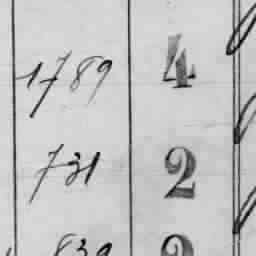 1789 4
731 2
839 2